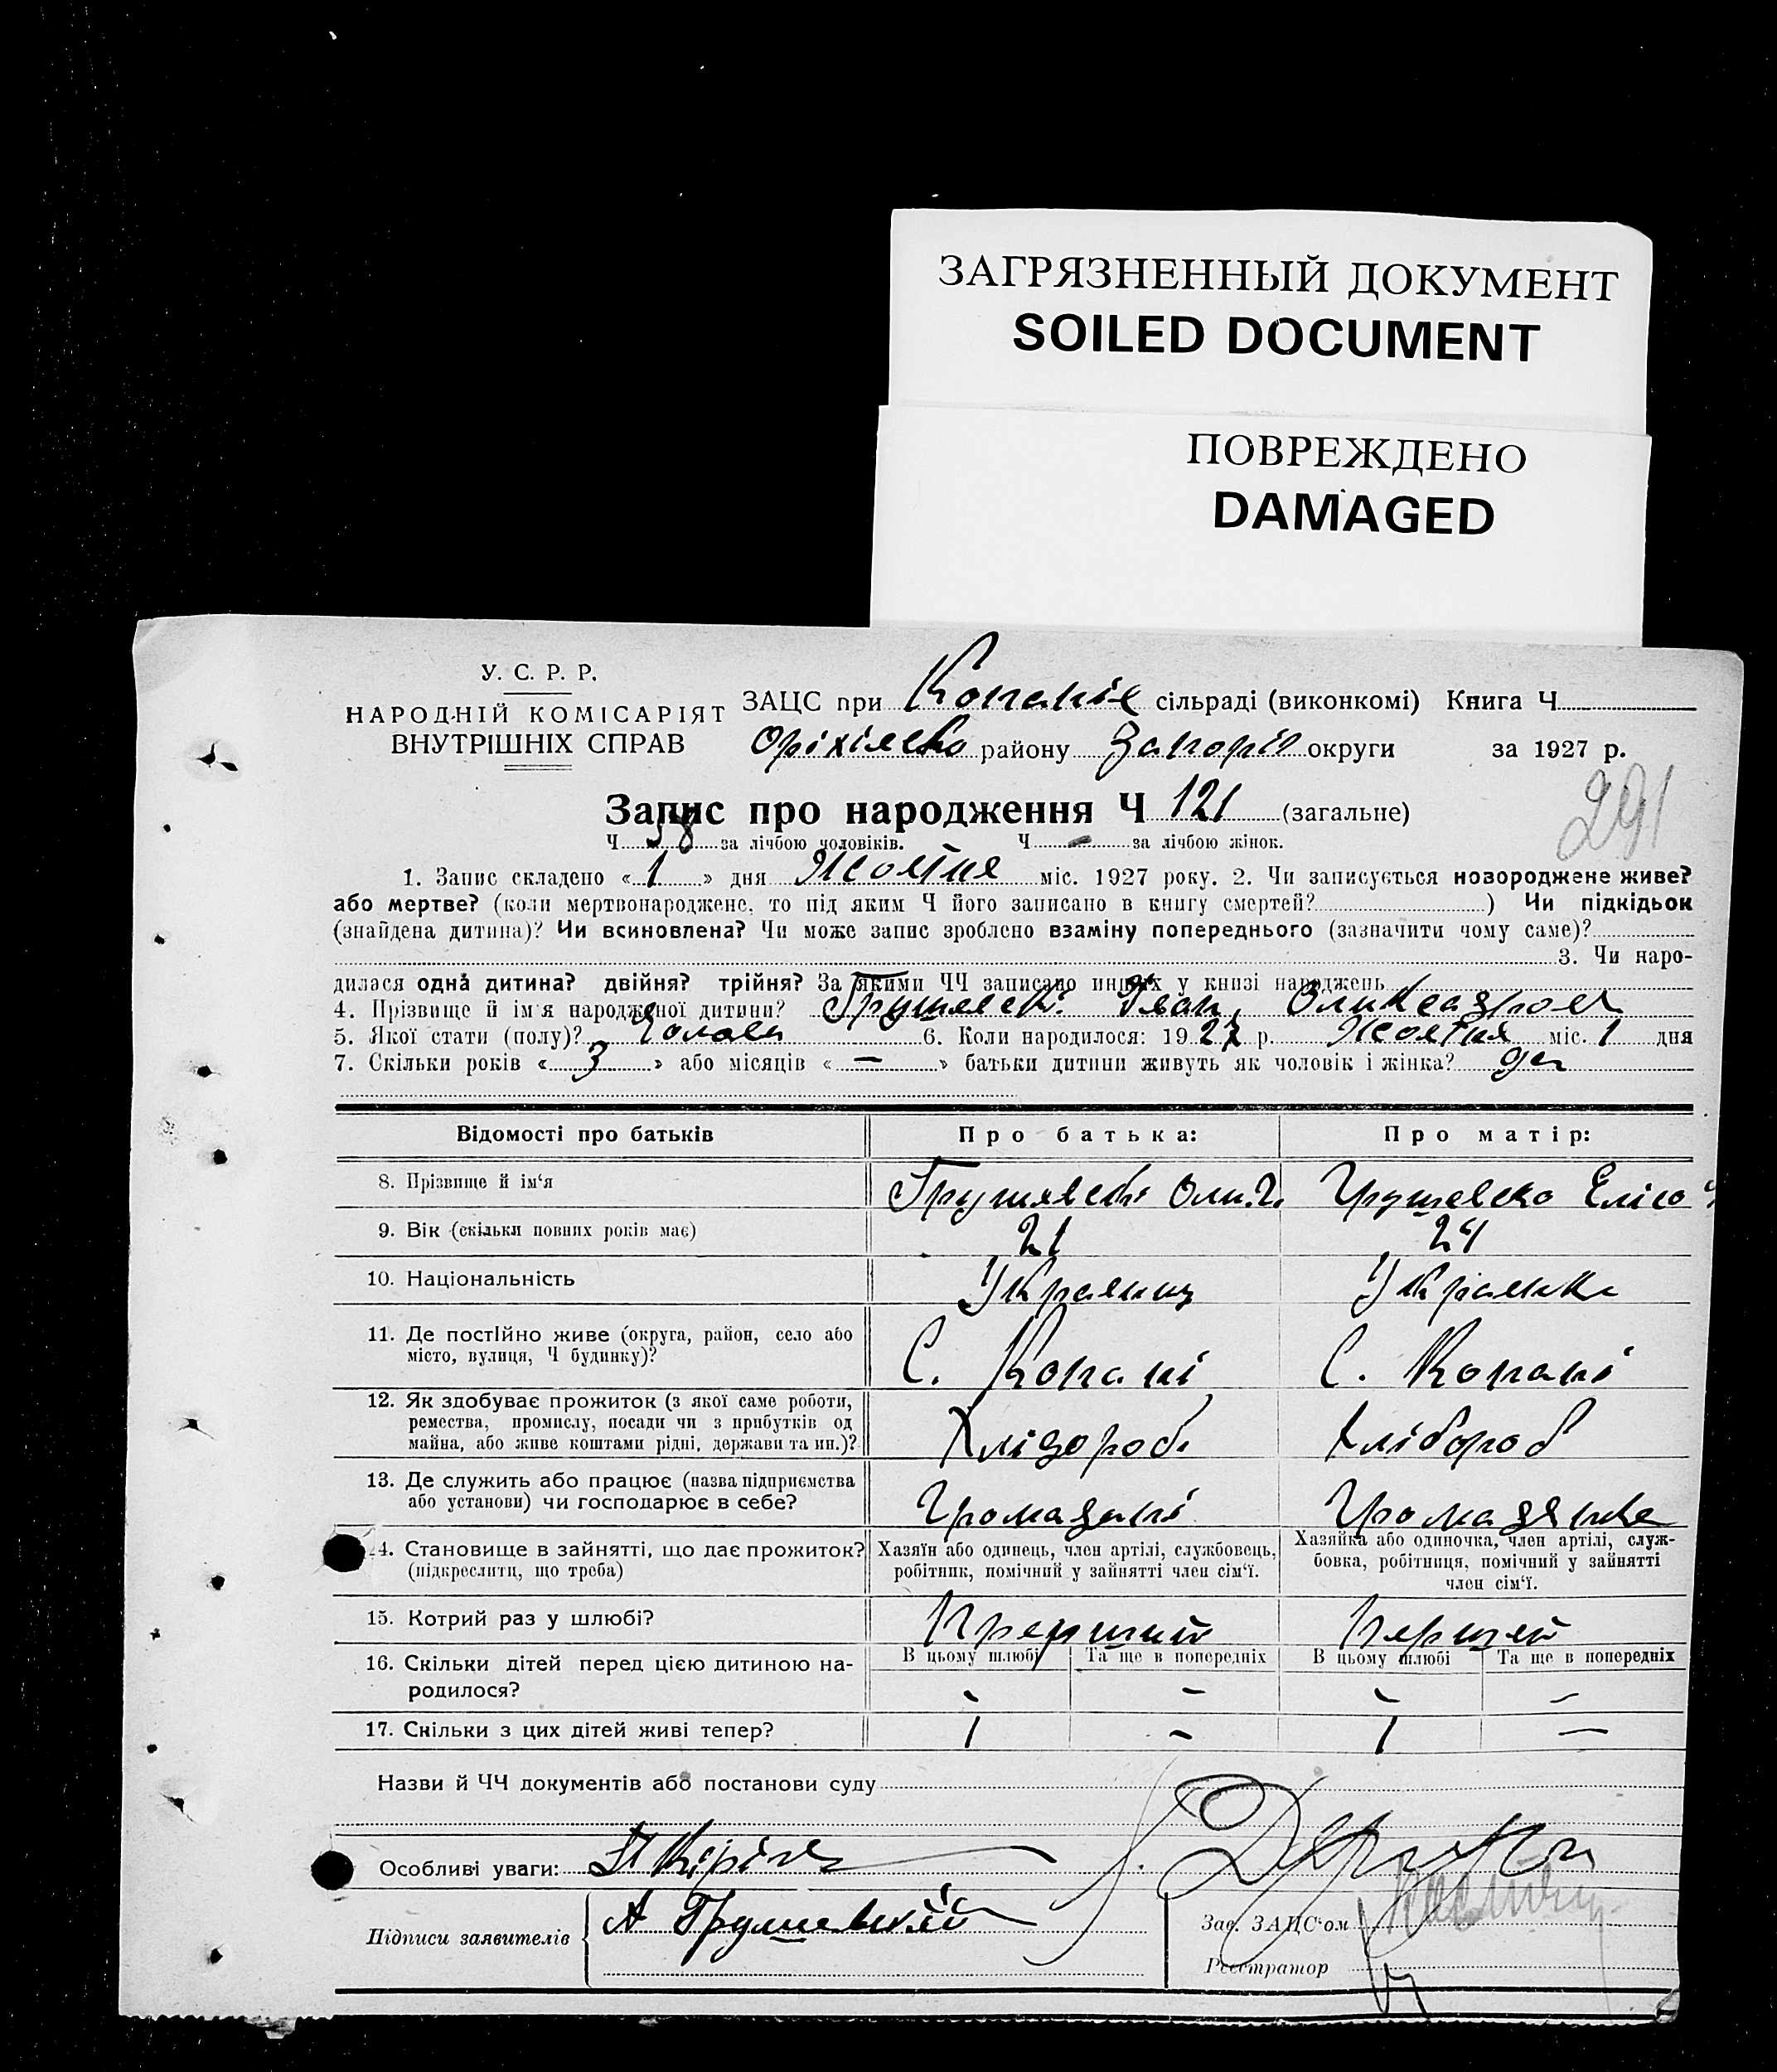 ЗАГРЯЗНЕННЫЙ ДОКУМЕНТ
SOILED DOCUMENT
ПОВРЕЖДЕНО
DAMAGED
У. С. Р. Р.
НАРОДНІЙ КОМІСАРІЯТ
ВНУТРІШНІХ СПРАВ
ЗАЦС при Копанів сільраді (виконкомі) Книга Ч
Оріхівсько району Запоріз округи за 1927 р.
291
Запис про народження Ч 121 (загальне)
Ч 58 за лічбою чоловіків. Ч — за лічбою жінок.
1. Запис складено «1» дня Жовтня міс. 1927 року. 2. Чи записується новороджене живе?
або мертве? (коли мертвонароджене, то під яким Ч його записано в книгу смертей? ) Чи підкідьок
(знайдена дитина)? Чи всиновлена? Чи може запис зроблено взаміну попереднього (зазначити чому саме)?
3. Чи наро-
дилася одна дитина? двійня? трійня? За якими ЧЧ записано инших у книзі народжень
4. Прізвище й ім'я народженої дитини? Грушевскі Іван Олександров
5. Якої стати (полу)? Чолов 6. Коли народилося: 1927 р. Жовтня міс. 1 дня
7. Скільки років «3» або місяців «—» батьки дитини живуть як чоловік і жінка? да
Відомості про батьків Про батька: Про матір:
8. Прізвище й ім'я Грушевскі Грушевско
9. Вік (скільки повних років має) 21 24
10. Національність Украинц Украинка
11. Де постійно живе (округа, район, село або
місто, вулиця, Ч будинку)? С. Копані С. Копані
12. Як здобуває прожиток (з якої саме роботи,
ремества, промислу, посади чи з прибутків од
майна, або живе коштами рідні, держави та ин.)? Хлібороб Хлібороб
13. Де служить або працює (назва підприємства
або установи) чи господарює в себе? Громадяні Громадянка
14. Становище в зайнятті, що дає прожиток? Хазяїн або одинець, член артілі, службовець, Хазяйка або одиночка, член артілі, служ-
(підкреслити, що треба) робітник, помічний у зайнятті член сім'ї. бовка, робітниця, помічний у зайнятті
член сім'ї.
15. Котрий раз у шлюбі? Перший Першей
16. Скільки дітей перед цією дитиною на- В цьому шлюбі Та ще в попередніх В цьому шлюбі Та ще в попередніх
родилося? - - - -
17. Скільки з цих дітей живі тепер? 1 - 1 -
Назви й ЧЧ документів або постанови суду
Особливі уваги:
Підписи заявителів А Грушевский
Зав. ЗАЦС'ом
Реєстратор